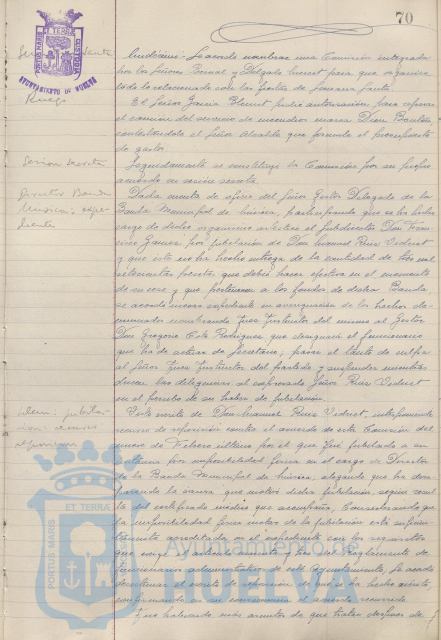 70
PORTUS MARIS
ET TERRÆ
CUSTODIA
AYUNTAMIENTO DE HUELVA
Ruego
Se acuerda nombrar una Comisión integrada
por los Señores Bernal y Delgado para que organice
todo lo relacionado con las fiestas de Semana Santa
El Señor García pidió autorización para reparar
el camión del servicio de incendios marca Dion Bouton
contestándole el Señor Alcalde que formule el presupuesto
de gastos.
Sesión secreta
Seguidamente se constituye la Comisión por su propio
acuerdo en sesión secreta.
Director Banda
Música: expe
diente
Dada cuenta de oficio del Señor Gestor Delegado de la
Banda Municipal de música, participando que se ha hecho
cargo de dicho organismo artístico el Subdirector Don Fran
cisco por jubilación de Don Manuel Ruiz Vidriet
y que éste no ha hecho entrega de la cantidad de tres mil
setecientas pesetas que debió hacer efectiva en el momento
de su cese y que pertenecen a los fondos de dicha Banda
se acordó incoar expediente en averiguación de los hechos de
nunciados nombrando Juez Instructor del mismo al Gestor
Don Gregorio Rodríguez que designará el funcionario
que ha de actuar de Secretario; pasar el tanto de culpa
al Señor Juez Instructor del partido y
las diligencias al expresado Señor Ruiz Vidriet
en el percibo de su haber de jubilación.
Idem: jubila
ción: recurso
reposición
Visto escrito de Don Manuel Ruiz Vidriet, interponiendo
recurso de reposición contra el acuerdo de esta Comisión del
nueve de Febrero último por el que fué jubilado a su
instancia por imposibilidad física en el cargo de Director
de la Banda Municipal de música, alegando que ha desa
parecido la causa que motivó dicha jubilación, según consta
del certificado médico que acompaña, Considerando que
la imposibilidad física motivo de la jubilación está suficien
temente acreditada en el expediente con los requisitos
que exige el artículo del Reglamento de
funcionarios administrativos de este Ayuntamiento, se acordó
desestimar el escrito de reposición de que se ha hecho mérito,
confirmando en su consecuencia el acuerdo recurrido.
Y no habiendo más asuntos de que tratar después de
PORTUS MARIS
ET TERRÆ
Ayuntamiento de
HUELVA